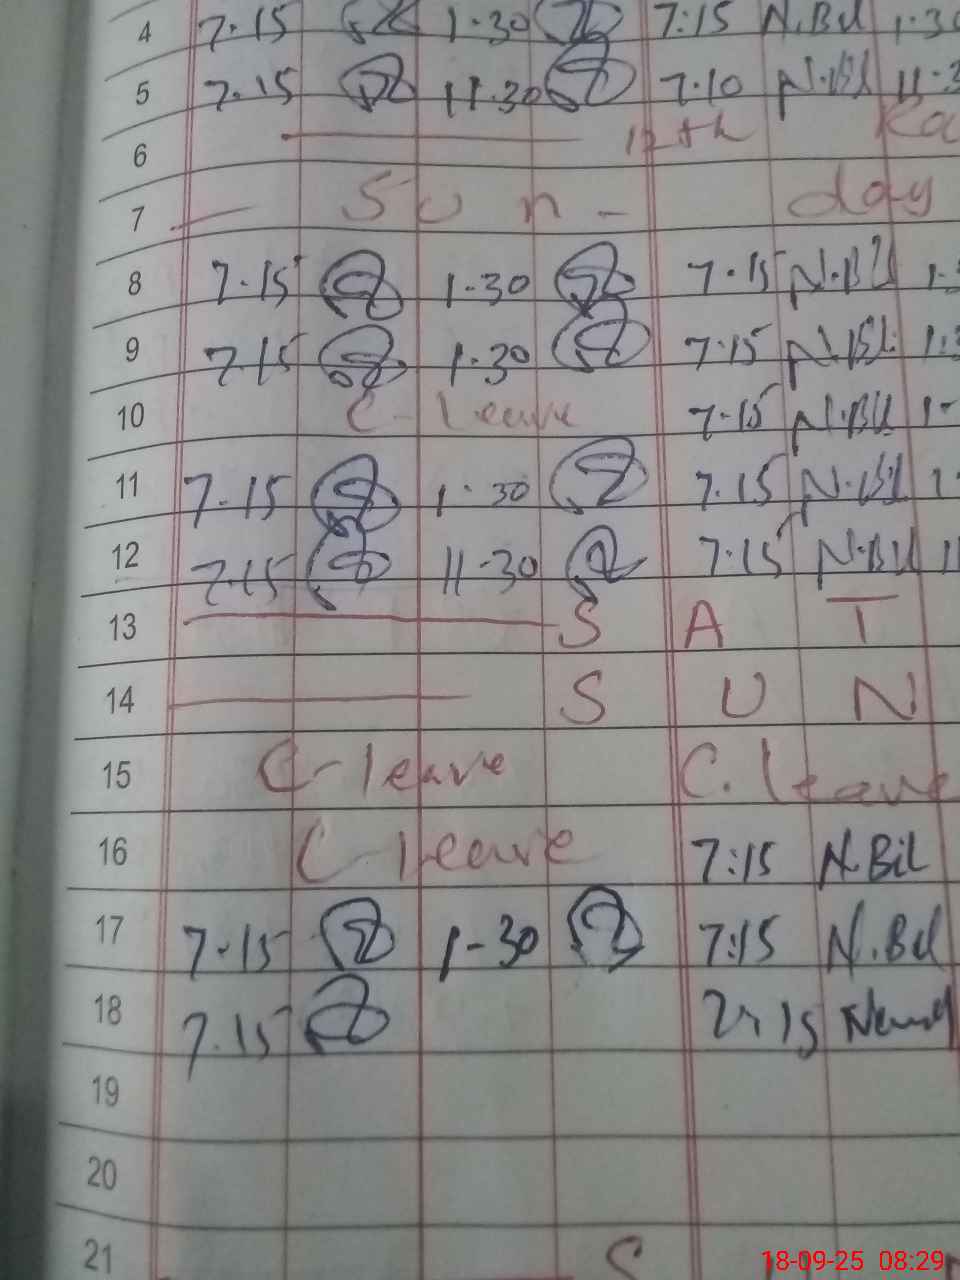 4 7.15 1.30 7:15 N.Bil 1.30
5 7.15 11.30 7.10 N.Bil 11.3
6 12th Ra
7 Sun - day
8 7.15 1-30 7.15 N.Bil 1-
9 7.15 1.30 7.15 N.Bil 1:3
10 C- leave 7.15 N.Bil 1-
11 7.15 1.30 7.15 N.Bil 1-
12 7.15 11-30 7.15 N.Bil 11
13 S A T
14 S U N
15 C-leave C.leave
16 C-leave 7:15 N.Bil
17 7-15 1-30 7:15 N.Bil
18 7.15
19
20
21 S
18-09-25 08:29